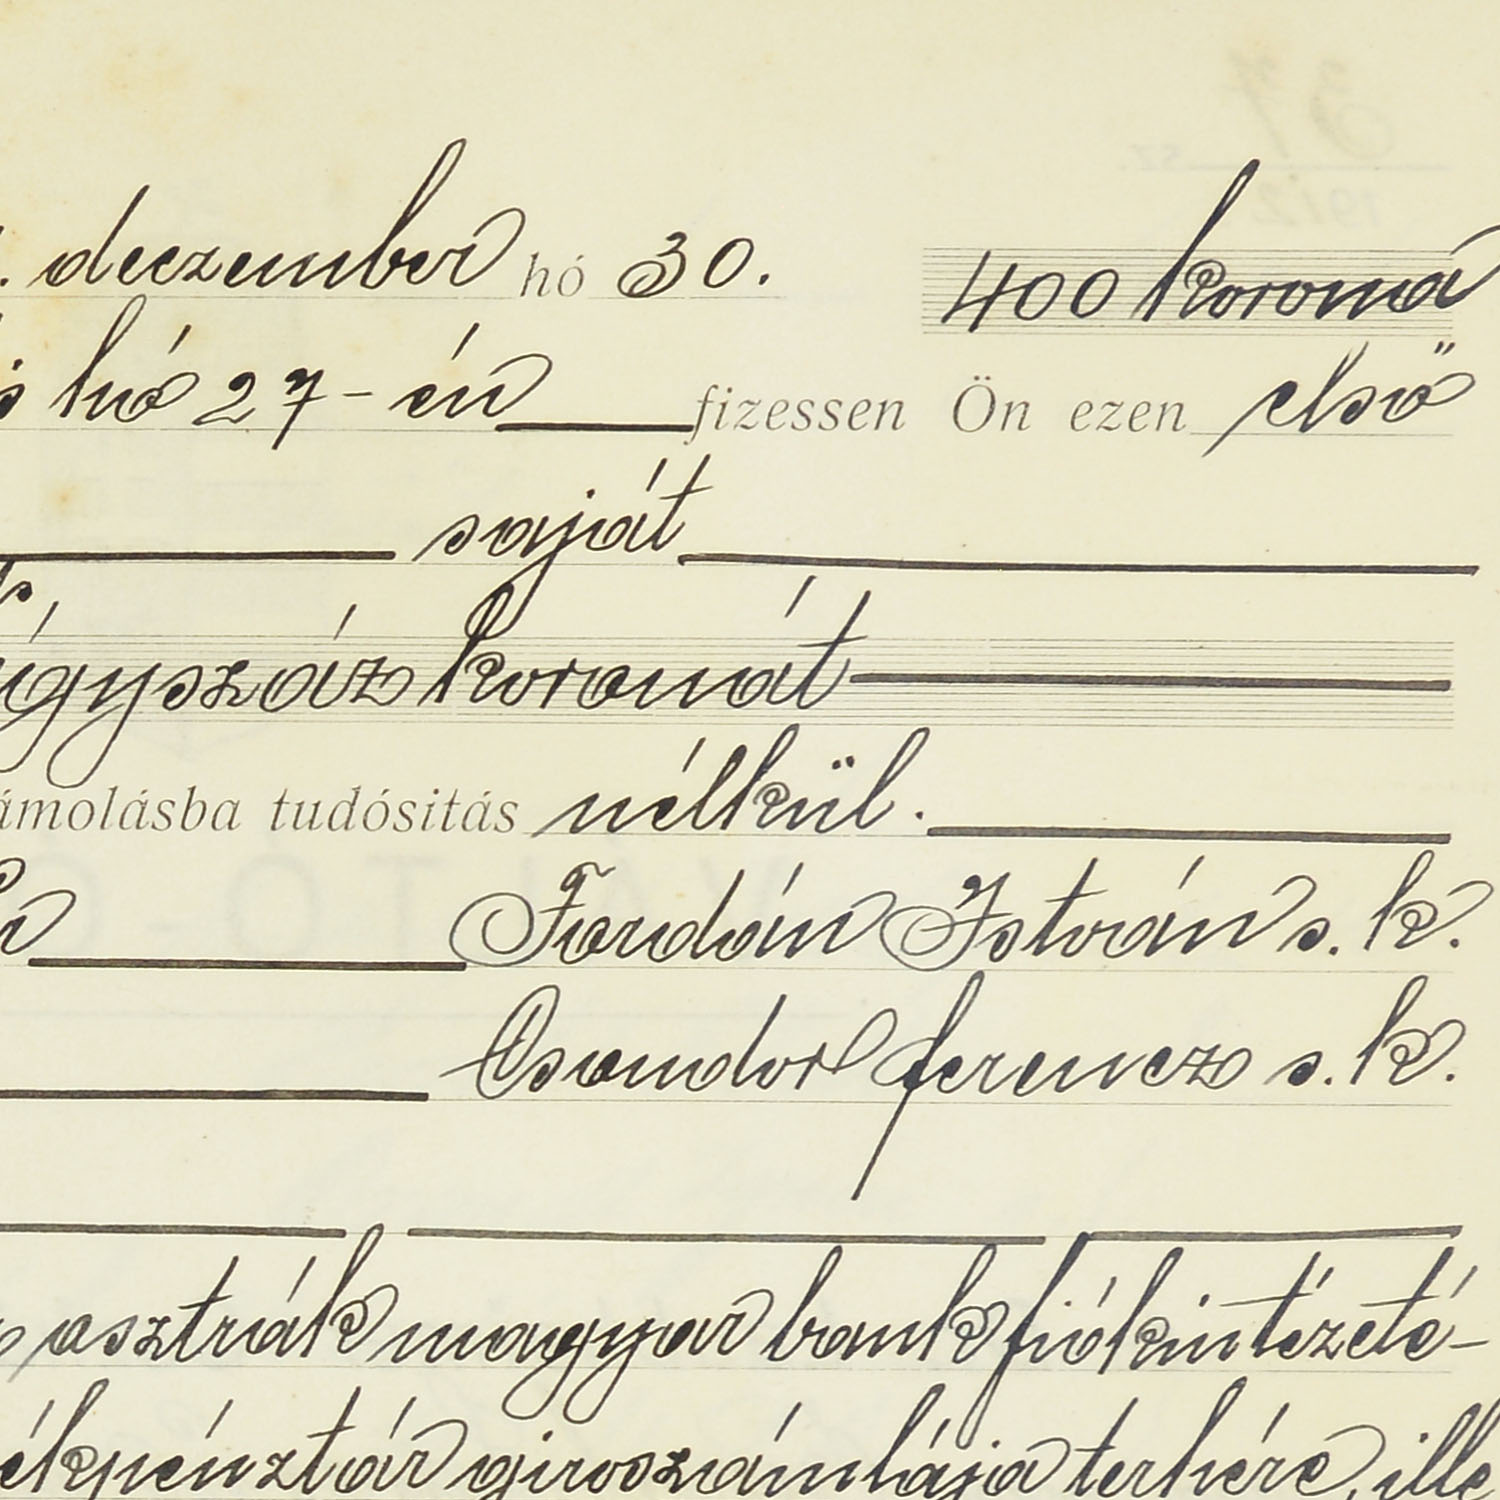 deczember hó 30. 400 korona
hó 27-én fizessen Ön ezen első
saját
négyszáz koronát
ámolásba tudósitás nélkül.
Jordán István s. k.
Csandor ferencz s. k.
asztrák magyar bank fiókintézeté-
ékpénztár giroszámlája terhére, ille